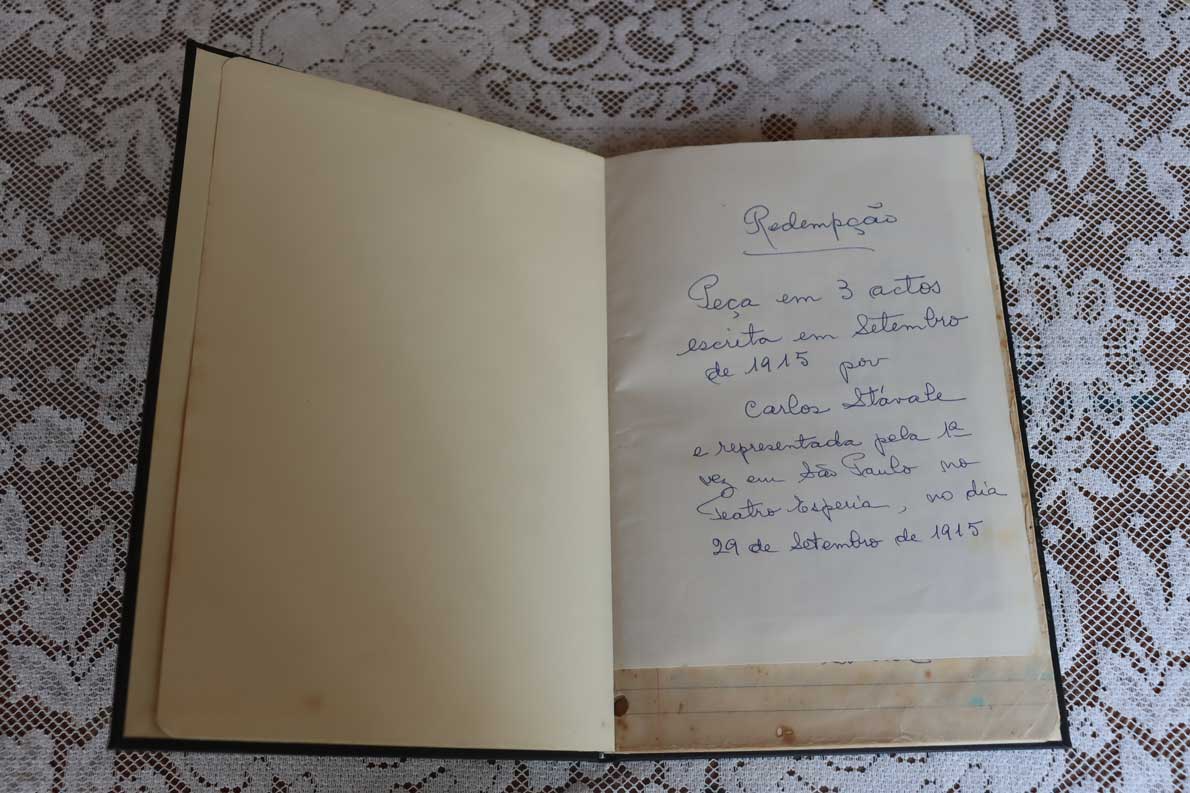 Redempção
Peça em 3 actos
escrita em Setembro
de 1915 por
Carlos Stávale
e representada pela 1ª
vez em São Paulo no
Teatro Esperia, no dia
29 de Setembro de 1915